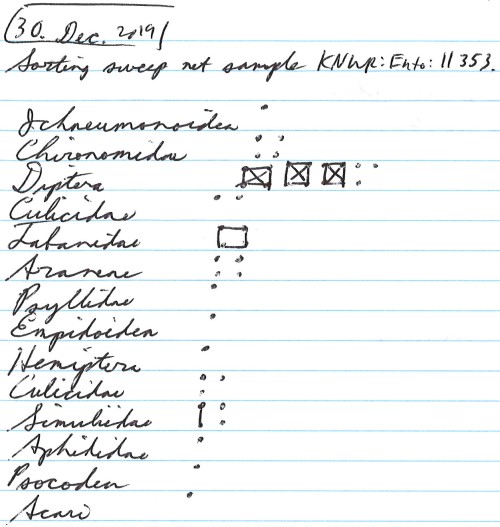 30. Dec. 2019
Sorting sweep net sample KNWR:Ento:11353.
Ichneumonoidea
Chironomidae
Diptera
Culicidae
Tabanidae
Araneae
Psyllidae
Empidoidea
Hemiptera
Culicidae
Simuliidae
Aphididae
Psocodea
Acari